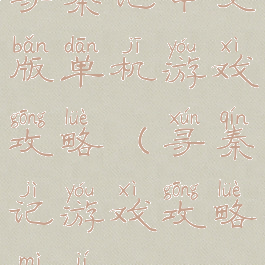 寻秦记中文
bǎn dān jī yóu xì
版单机游戏
gōng lüè xún qín
攻略（寻秦
jì yóu xì gōng lüè
记游戏攻略
mì jí